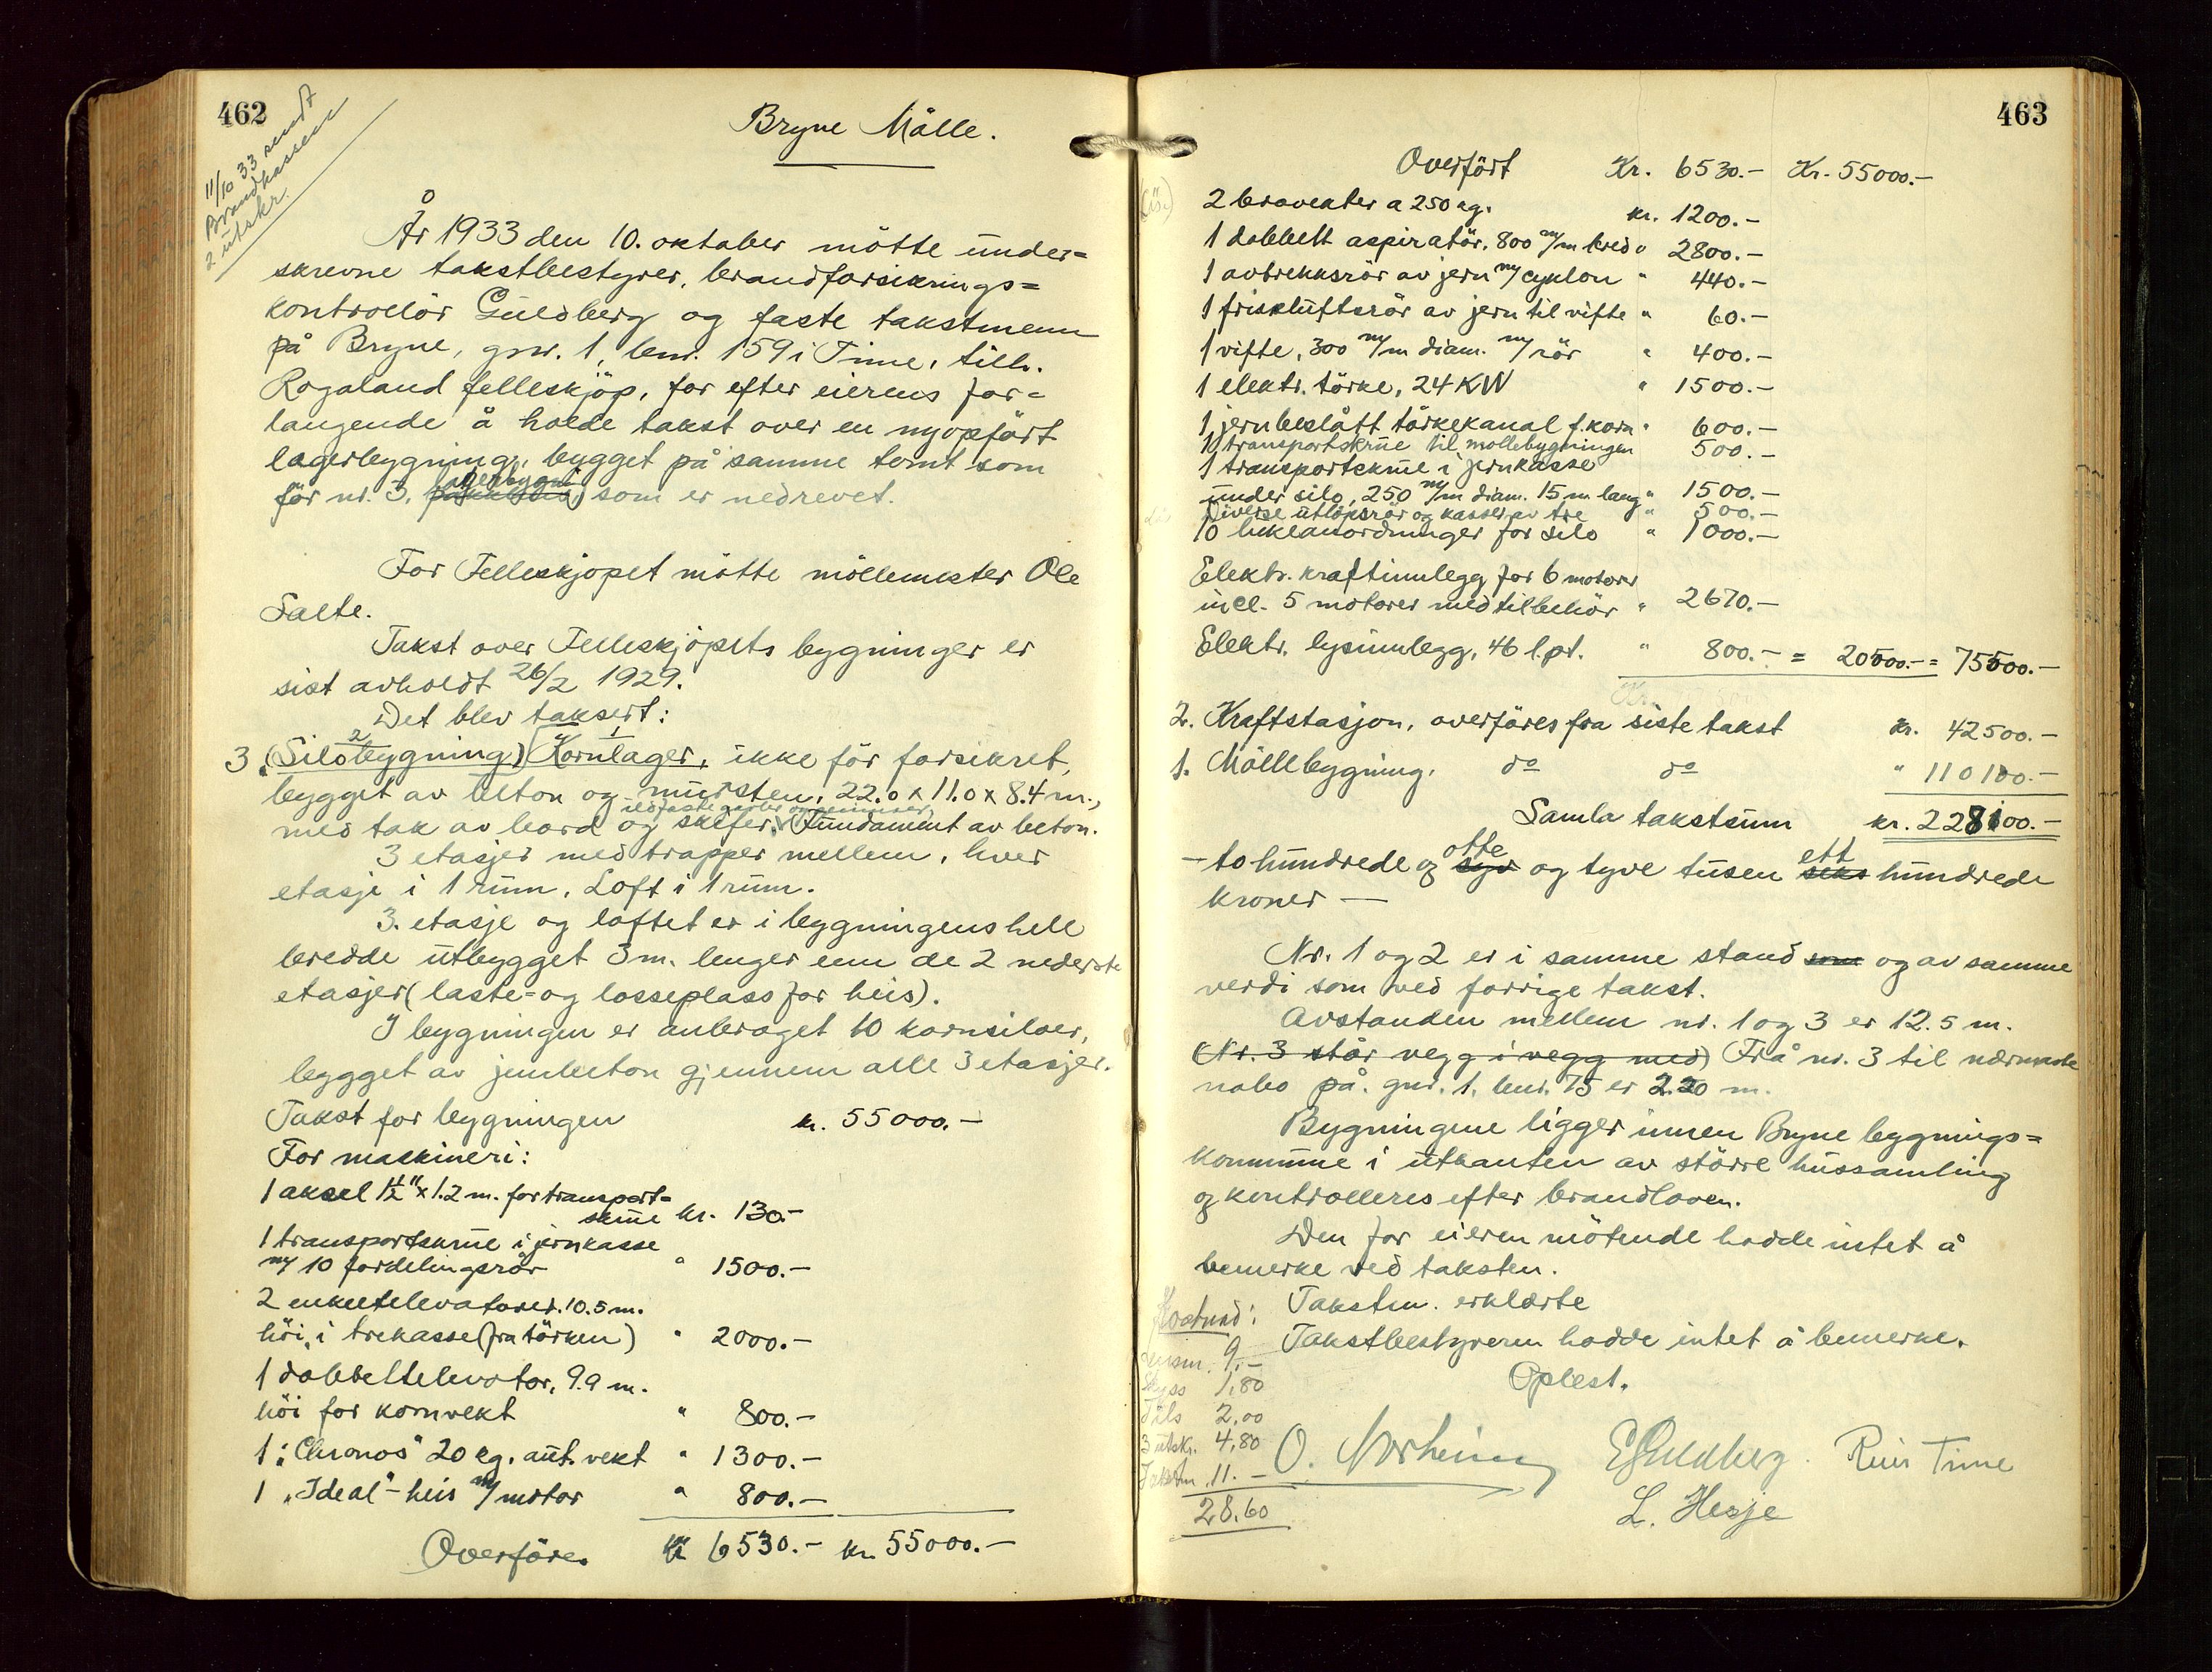 462
11/10 33 sendt
Brandkassen
2 utskr.
Bryne Mölle.
År 1933 den 10. oktober mötte under=
skrevne takstbestyrer, brandforsikrings=
kontrollör Guldberg og faste takstmenn
på Bryne, gnr. 1, bnr. 159 i Time, tilh.
Rogaland felleskjöp, for efter eierens for=
langende å holde takst over en nyopfört
lagerbygning, bygget på samme tomt som
för nr. 3, lagerbygn. som er nedrevet.
For Felleskjöpet mötte möllemester Ole
Salte.
Takst over Felleskjöpets bygninger er
sist avholdt 26/2 1929.
Det blev taksert:
3. (Silobygning) 2 Kornlager, 1 ikke för forsikret,
bygget av beton og mursten, 22.0 x 11.0 x 8.4 m.,
ildfaste gavler og gesimser,
med tak av bord og skifer. Fundament av beton.
3 etasjer med trapper mellem, hver
etasje i 1 rum. Loft i 1 rum.
3. etasje og loftet er i bygningens hele
bredde utbygget 3 m. lenger enn de 2 nederste
etasjer (laste= og losseplass for heis).
I bygningen er anbraget 10 kornsiloer,
bygget av jernbeton gjennem alle 3 etasjer.
Takst for bygningen kr. 55000.–
For maskineri:
1 aksel 1½" x 1.2 m. for transport=
skrue kr. 130.–
1 transportskrue i jernkasse
m/ 10 fordelingsrör " 1500.–
2 enkeltelevatorer. 10.5 m.
höi, i trekasse (fra törken) " 2000.–
1 dobbeltelevator, 9.9 m.
höi for kornvekt " 800.–
1 "Chronos" 20 kg. aut. vekt " 1300.–
1 "Ideal"-heis m/ motor " 800.–
Overföres kr 6530.– kr. 55000.–
463
Overfört Kr. 6530.– Kr. 55000.–
2 brovekter a 250 kg. kr. 1200.–
1 dobbelt aspiratör, 800 m/m bred " 2800.–
1 avtrekksrör av jern m/ cyklon " 440.–
1 friskluftsrör av jern til vifte " 60.–
1 vifte, 300 m/m diam. m/ rör " 400.–
1 elektr. törke, 24 KW " 1500.–
1 jernbeslått törkekanal f. korn " 600.–
1 transportskrue til möllebygningen 500.–
1 transportskrue i jernkasse
under silo, 250 m/m diam. 15 m. lang " 1500.–
Diverse utlöpsrör og kasser av tre " 500.–
10 lukkeanordninger for silo " 1000.–
Elektr. kraftinnlegg for 6 motorer
incl. 5 motorer med tilbehör " 2670.–
Elektr. lysinnlegg, 46 l.pt. " 800.– = 20500.– = 75500.–
2. Kraftstasjon, overföres fra siste takst kr. 42500.–
1. Möllebygning, do do " 110100.–
Samla takstsum kr. 228100.–
– to hundrede og syv otte og tyve tusen seks ett hundrede
kroner –
Nr. 1 og 2 er i samme stand som og av samme
verdi som ved forrige takst.
Avstanden mellem nr. 1 og 3 er 12.5 m.
(Nr. 3 står vegg i vegg med) Frå nr. 3 til nærmaste
nabo på gnr. 1, bnr. 75 er 2.20 m.
Bygningene ligger innen Bryne bygnings=
kommune i utkanten av större hussamling
og kontrolleres efter brandloven.
Den for eieren mötende hadde intet å
bemerke ved taksten.
Takstm. erklærte
Takstbestyreren hadde intet å bemerke.
Oplest.
Kostnad:
Lensm. 9.–
Skyss 1,80
2,00
3 utskr. 4,80
Takstm. 11.–
28,60
O. Norheim E Guldberg. Reier Time
L. Hesje